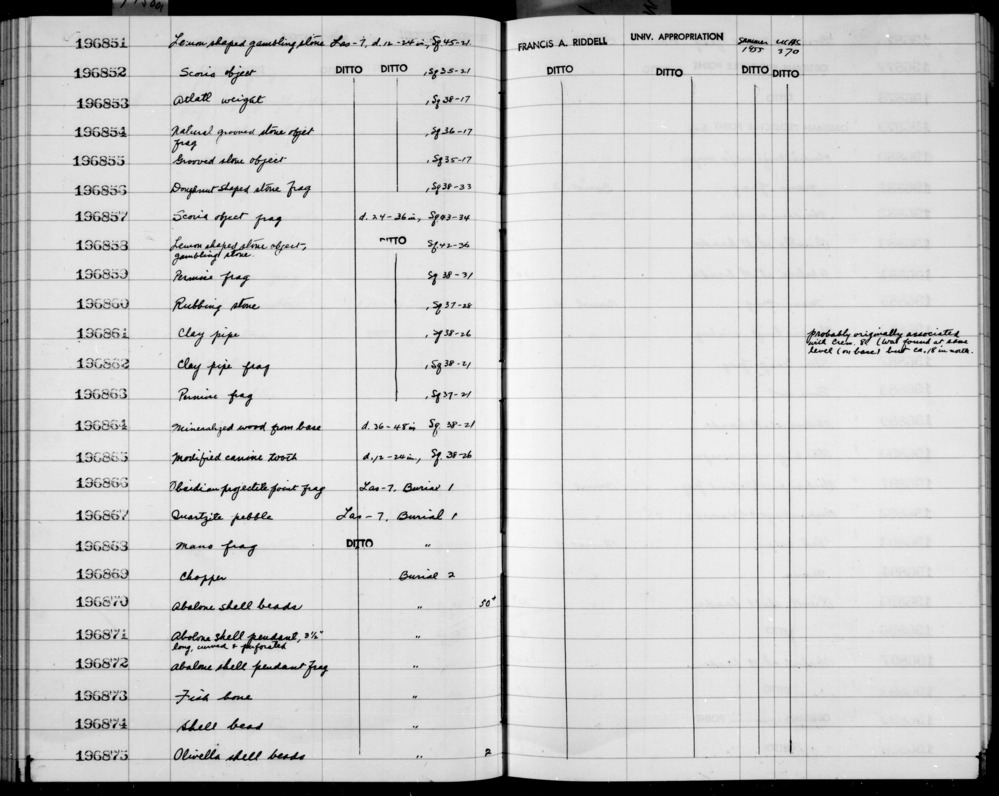 196851 Lemon shaped gambling stone Las-7, d. 12-24 in, Sq 45-21 FRANCIS A. RIDDELL UNIV. APPROPRIATION Summer 1955 UCAS 370
196852 Scoria object DITTO DITTO , Sq 35-21 DITTO DITTO DITTO DITTO
196853 Atlatl weight , Sq 38-17
196854 Natural grooved stone object , Sq 36-17
frag
196855 Grooved stone object , Sq 35-17
196856 Doughnut shaped stone frag , Sq 38-33
196857 Scoria object frag d. 24-36 in, Sq 43-34
196858 Lemon shaped stone object, DITTO Sq. 42-36
gambling stone
196859 Pumice frag Sq 38-31
196860 Rubbing stone , Sq 37-28
196861 Clay pipe , Sq 38-26 probably originally associated
with Crem. 8. (was found at same
level (on base) but ca. 18 in north.
196862 Clay pipe frag , Sq 38-21
196863 Pumice frag , Sq 37-21
196864 Mineralized wood from base d. 36-48 in Sq. 38-21
196865 Modified canine tooth d. 12-24 in, Sq. 38-26
196866 Obsidian projectile point frag Las-7, Burial 1
196867 Quartzite pebble Las-7, Burial 1
196868 Mano frag DITTO "
196869 Chopper Burial 2
196870 Abalone shell beads " 50+
196871 Abalone shell pendant, 3½" "
long, curved & perforated
196872 Abalone shell pendant frag "
196873 Fish bone "
196874 Shell bead "
196875 Olivella shell beads " 2